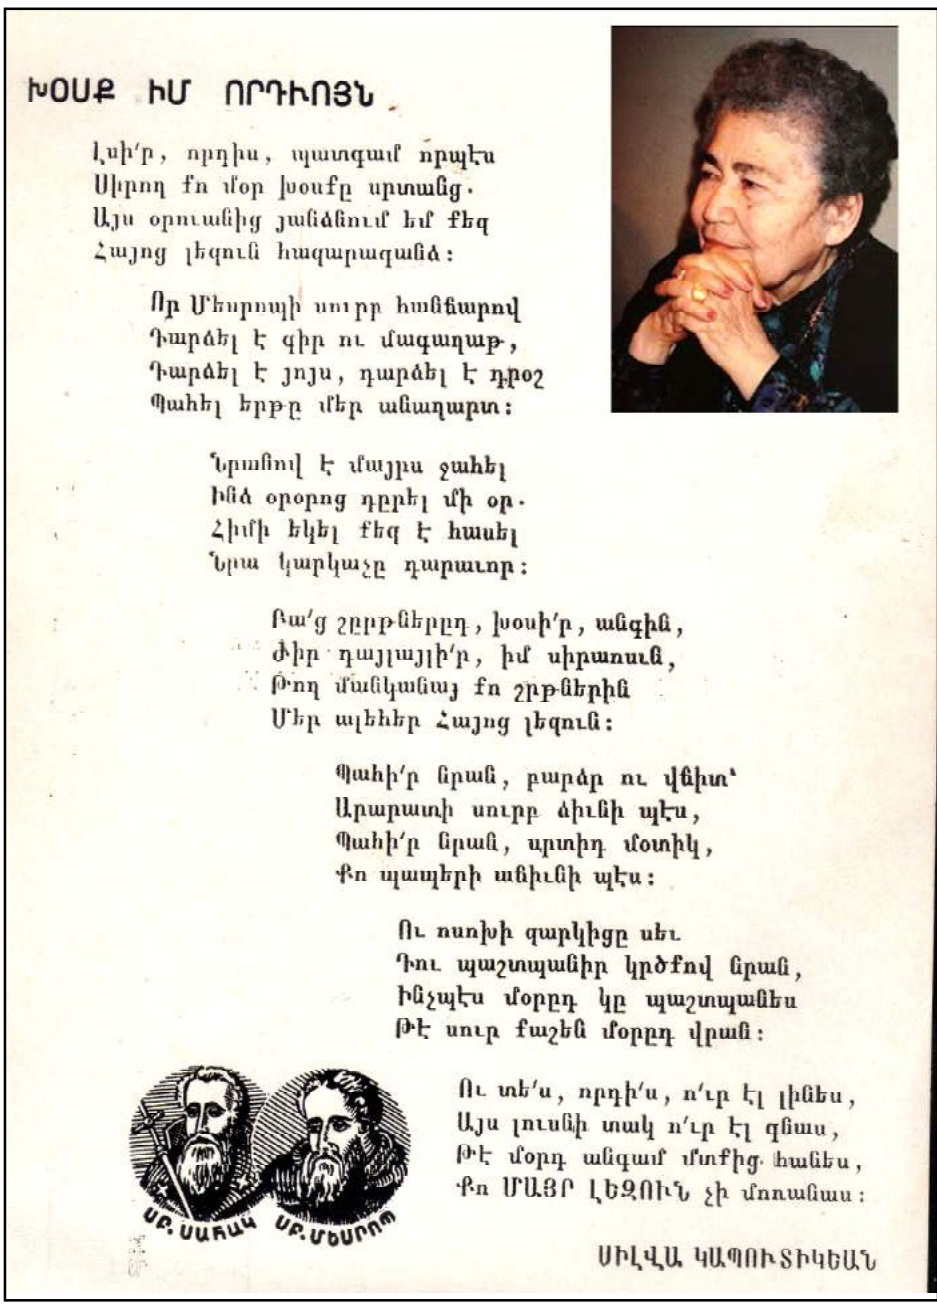 ԽՕՍՔ ԻՄ ՈՐԴՒՈՅՆ
Լսի՛ր, որդիս, պատգամ որպէս
Սիրող քո մօր խօսքը սրտանց.
Այս օրուանից յանձնում եմ քեզ
Հայոց լեզուն հազարագանձ:
Որ Մեսրոպի սուրբ հանճարով
Դարձել է գիր ու մագաղաթ,
Դարձել է յոյս, դարձել է դրօշ
Պահել երթը մեր անաղարտ:
Նրանով է մայրս ջահել
Ինձ օրօրոց դըրել մի օր.
Հիմի եկել քեզ է հասել
Նրա կարկաչը դարաւոր:
Բա՛ց շըրթներըդ, խօսի՛ր, անգին,
Ժիր դայլայլի՛ր, իմ սիրասուն,
Թող մանկանայ քո շրթներին
Մեր ալեհեր Հայոց լեզուն:
Պահի՛ր նրան, բարձր ու վճիտ՝
Արարատի սուրբ ձիւնի պէս,
Պահի՛ր նրան, սրտիդ մօտիկ,
Քո պապերի անիւնի պէս:
Ու ոսոխի զարկիցը սեւ
Դու պաշտպանիր կրծքով նրան,
Ինչպէս մօրըդ կը պաշտպանես
Թէ սուր քաշեն մօրըդ վրան:
Ու տե՛ս, որդի՛ս, ո՛ւր էլ լինես,
Այս լուսնի տակ ո՛ւր էլ գնաս,
Թէ մօրդ անգամ մտքից հանես,
Քո ՄԱՅՐ ԼԵԶՈՒՆ չի մոռանաս:
ՍԲ. ՍԱՀԱԿ ՍԲ. ՄԵՍՐՈՊ
ՍԻԼՎԱ ԿԱՊՈՒՏԻԿԵԱՆ